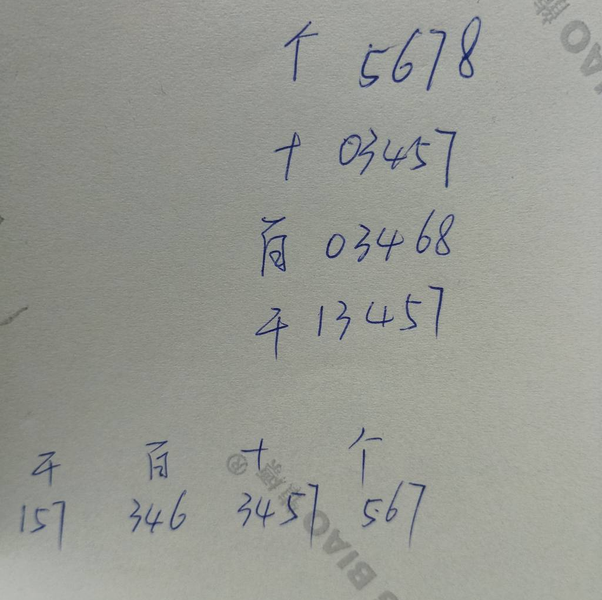 个 5678
十 03457
百 03468
千 13457
千 百 十 个
157 346 3457 567
BIAO
BIAO